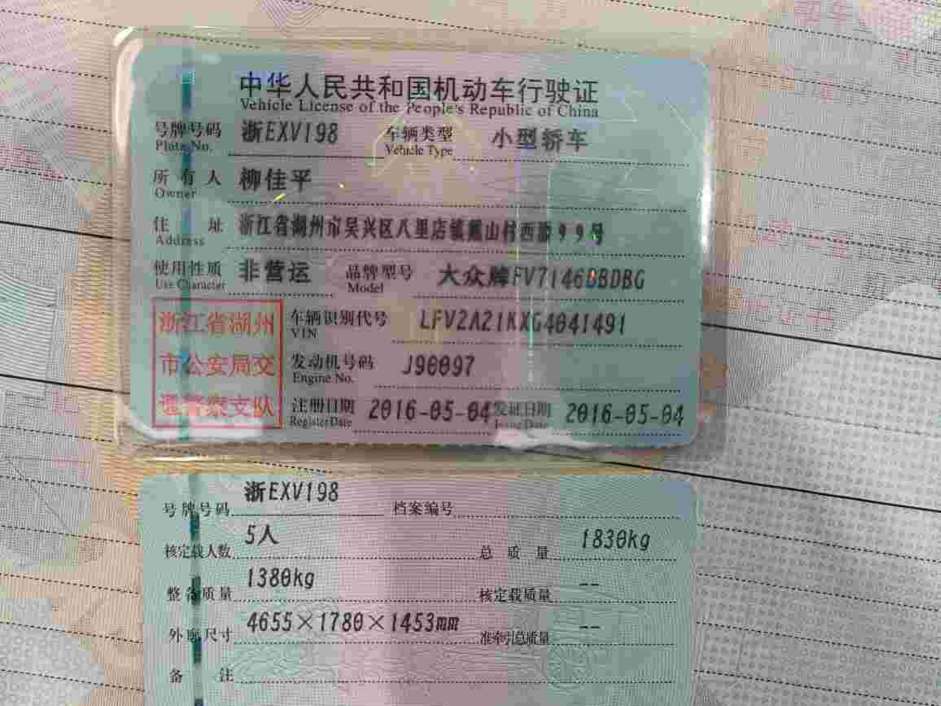 中华人民共和国机动车行驶证
Vehicle License of the People's Republic of China
号牌号码 浙EXV198 车辆类型 小型轿车
Plate No. Vehicle Type
所有人 柳佳平
Owner
住址 浙江省湖州市吴兴区八里店镇戴山村西源99号
Address
使用性质 非营运 品牌型号 大众牌FV7146BBDBG
Use Character Model
浙江省湖州 车辆识别代号 LFV2A21KXG4041491
VIN
市公安局交 发动机号码 J90097
Engine No.
通警察支队 注册日期 2016-05-04 发证日期 2016-05-04
Register Date Issue Date
号牌号码 浙EXV198 档案编号
核定载人数 5人 总质量 1830kg
整备质量 1380kg 核定载质量 --
外廓尺寸 4655×1780×1453mm 准牵引总质量 --
备注